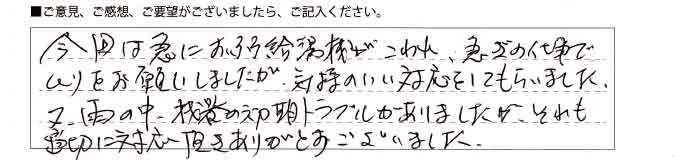 ■ご意見、ご感想、ご要望がございましたら、ご記入ください。
今回は急にお湯給湯機がこわれ、急ぎの仕事で
ムリをお願いしましたが、気持のいい対応をしてもらいました。
又、雨の中、機器の初期トラブルがありましたが、それも
適切に対応頂きありがとうございました。